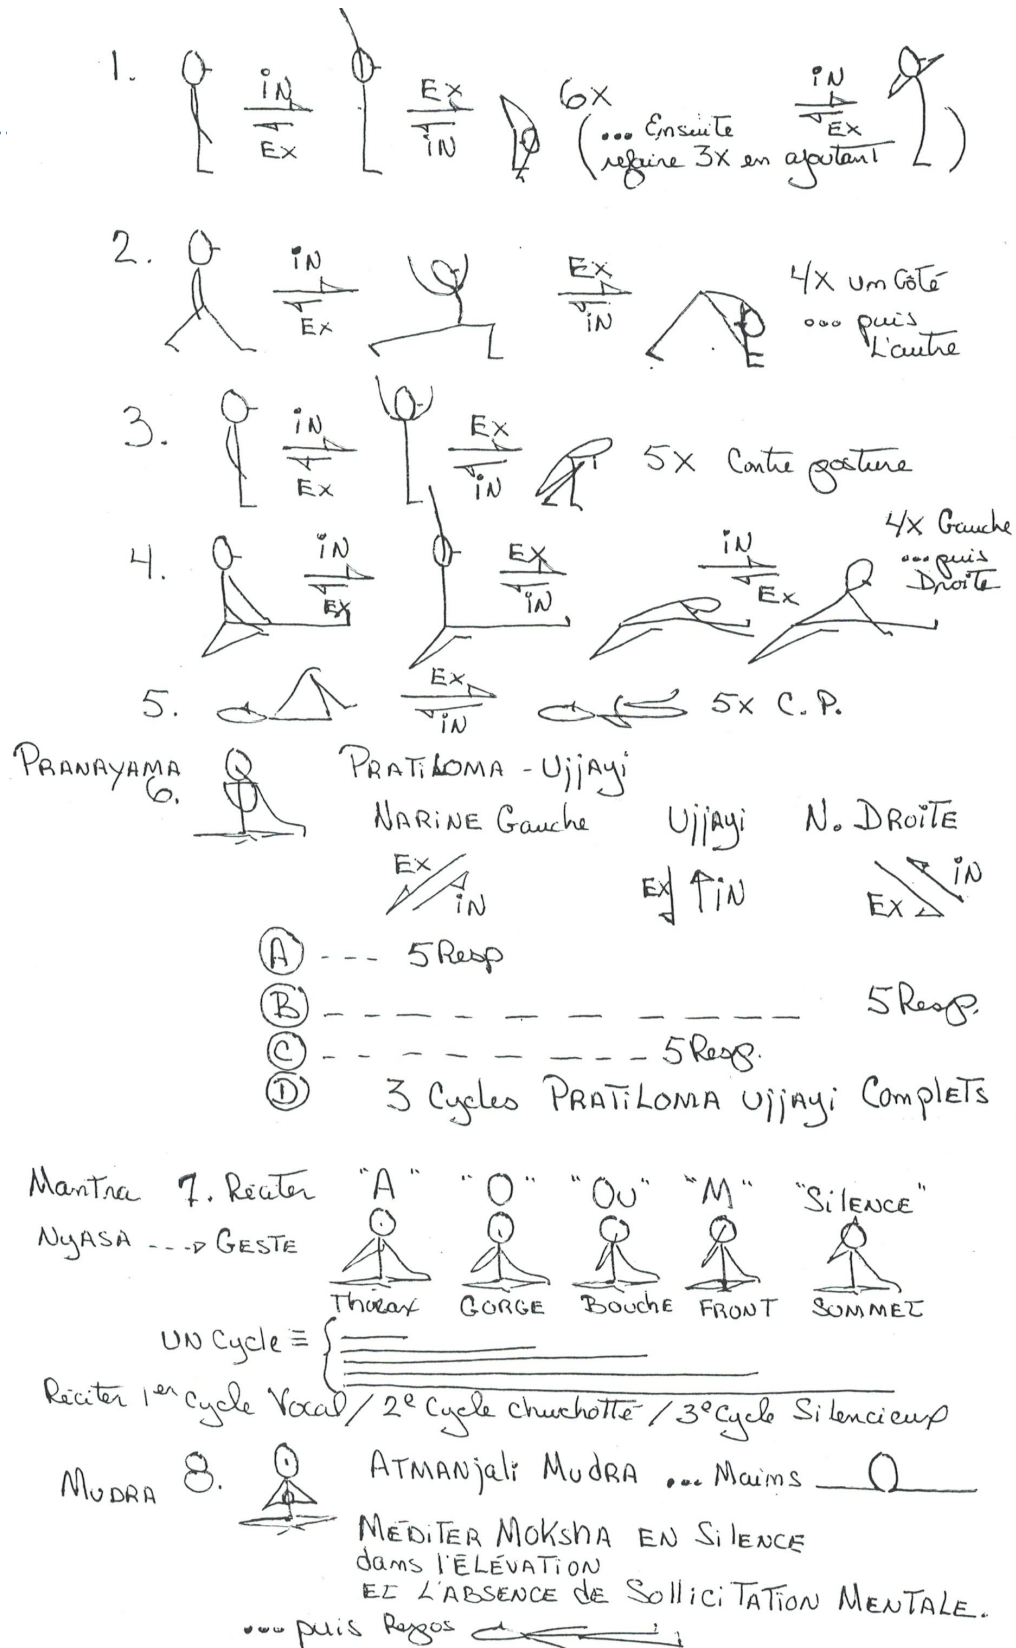 1. iN Ex Ex iN 6x iN Ex
(... Ensuite
refaire 3x en ajoutant )
2. iN Ex Ex iN 4x un Côté
... puis
L'autre
3. iN Ex Ex iN 5x Contre posture
4. iN Ex Ex iN iN Ex 4x Gauche
... puis
Droite
5. Ex iN 5x C.P.
PRANAYAMA
6. PRATiLOMA - Ujjayi
NARiNE Gauche Ujjayi N. DROiTE
Ex iN Ex iN iN Ex
A --- 5 Resp
B - - - - - - - - - 5 Resp.
C - - - - - - - - 5 Resp.
D 3 Cycles PRATiLOMA Ujjayi Complets
Mantra 7. Réciter "A" "O" "Ou" "M" "SiLENCE"
NyASA ---> GESTE
Thorax GORGE Bouche FRONT SOMMET
UN Cycle ≡ {
Réciter 1er cycle Vocal / 2e Cycle chuchotté / 3e Cycle Silencieux
MUDRA 8. ATMANjali MUDRA ... Mains
MÉDiTER MoKshA EN SiLENCE
dans l'ÉLÉVATiON
ET L'ABSENCE de SolliciTATiON MENTALE.
... puis Repos